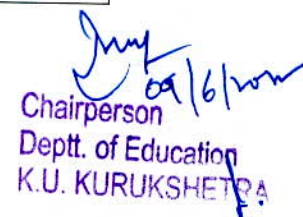 09/6/2022
Chairperson
Deptt. of Education
K.U. KURUKSHETRA